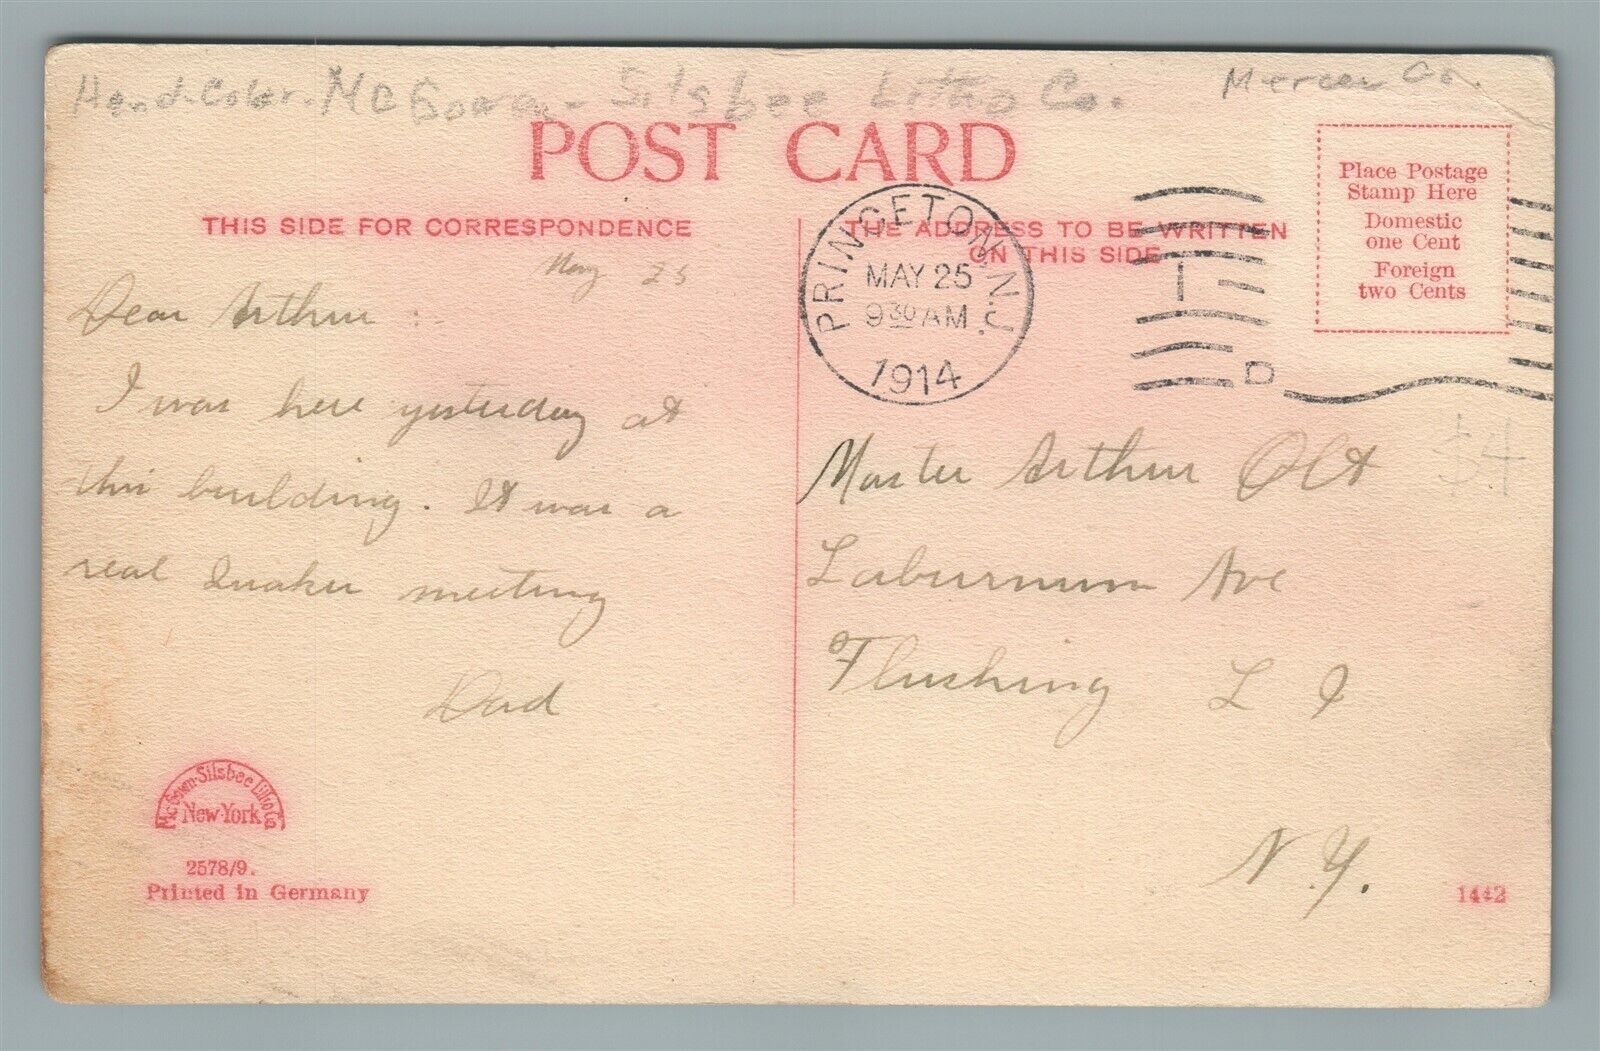 Hand-Color. McGowan-Silsbee Litho Co. Mercer Co.
POST CARD
THIS SIDE FOR CORRESPONDENCE
THE ADDRESS TO BE WRITTEN
ON THIS SIDE
Place Postage
Stamp Here
Domestic
one Cent
Foreign
two Cents
PRINCETON, N.J.
MAY 25
9 30 AM
1914
1
D
May 25
Dear Arthur :-
I was here yesterday at
this building. It was a
real Quaker meeting
Dad
Master Arthur Olt
Laburnum Ave
Flushing L I
N.Y.
$4
McGown-Silsbee Litho Co
New-York
2578/9.
Printed in Germany
1442